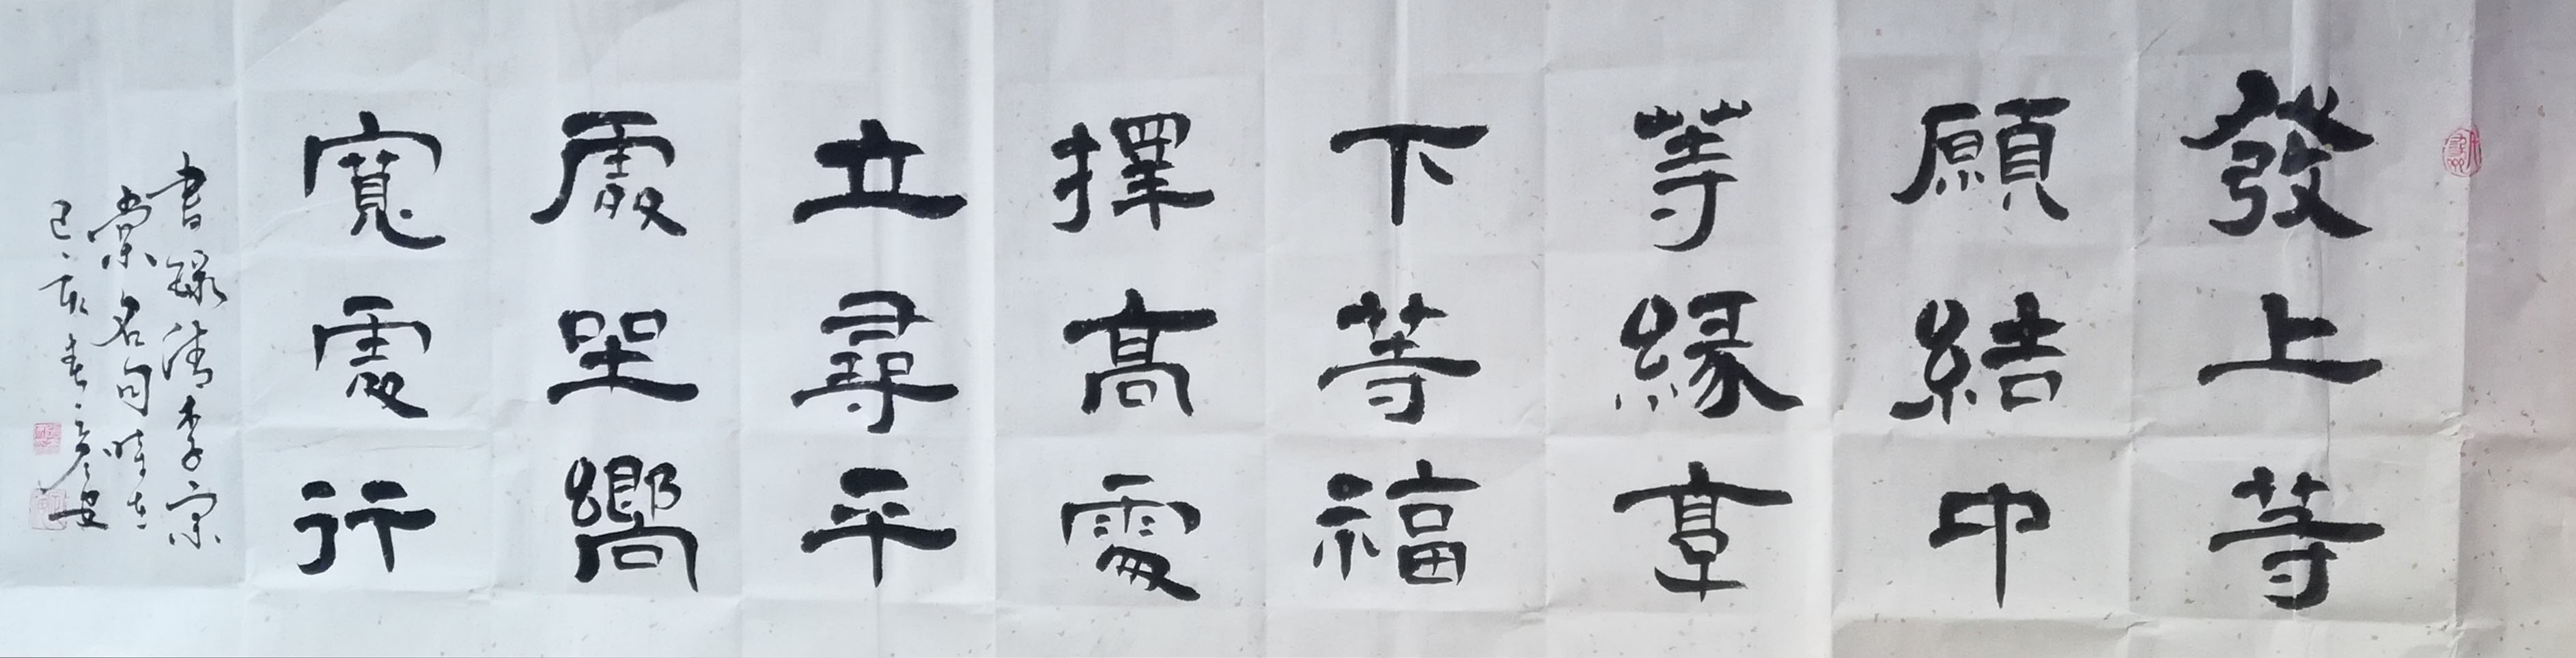 發上等
願結中
等緣享
下等福
擇高處
立尋平
處坐嚮
寬處行
書錄清李宗
棠名句時在
己亥春